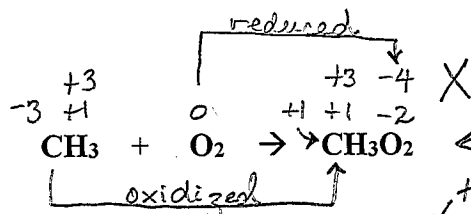 reduced
+3 +3 -4 X
-3 +1 0 +1 +1 -2
CH3 + O2 → CH3O2
oxidized